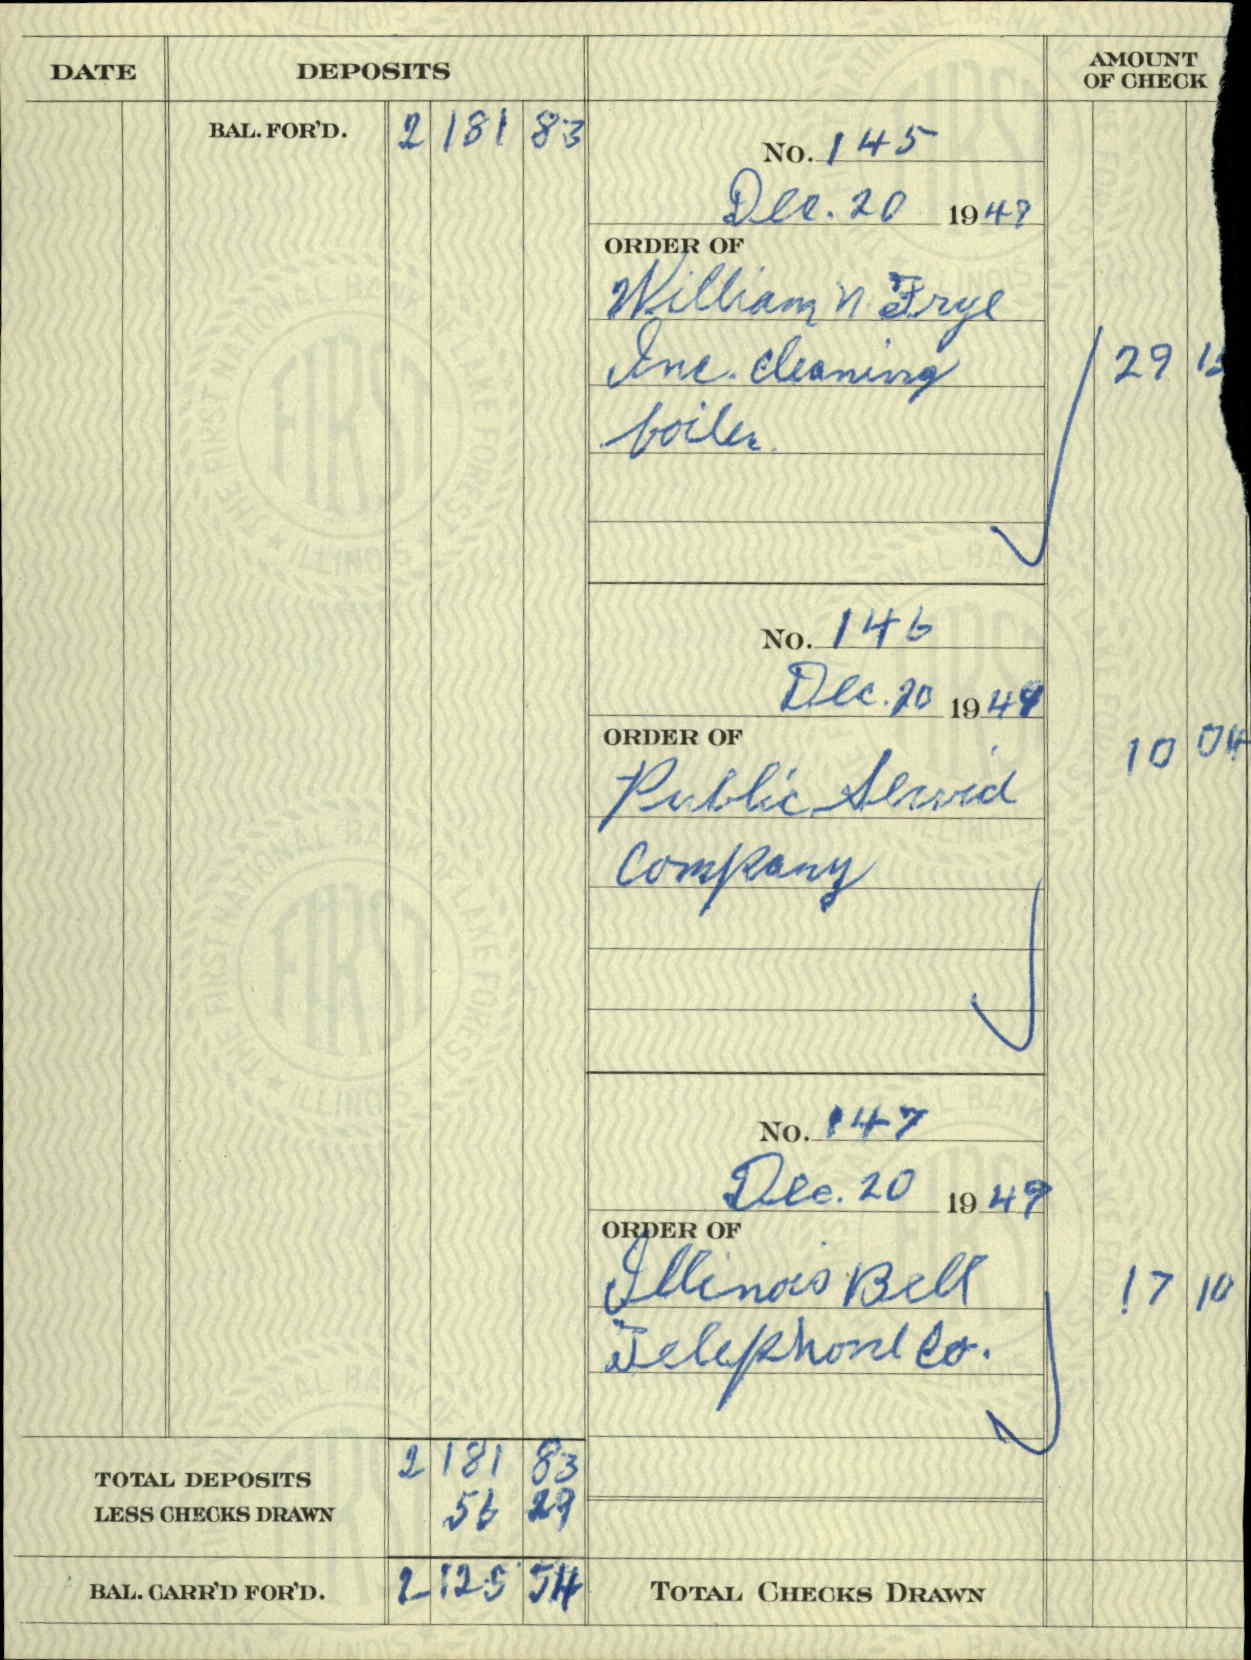 DATE DEPOSITS AMOUNT OF CHECK
BAL. FOR'D. 2 181 83
No. 145
Dec. 20 1949
ORDER OF
William N. Frye
Inc. cleaning 29
boiler.
No. 146
Dec. 20 1949
ORDER OF
Public Servic 10 04
Company
No. 147
Dec. 20 1949
ORDER OF
Illinois Bell 17 10
Telephone Co.
TOTAL DEPOSITS 2 181 83
LESS CHECKS DRAWN 56 29
BAL. CARR'D FOR'D. 2 125 54
TOTAL CHECKS DRAWN
THE FIRST NATIONAL BANK OF LAKE FOREST
ILLINOIS
FIRST